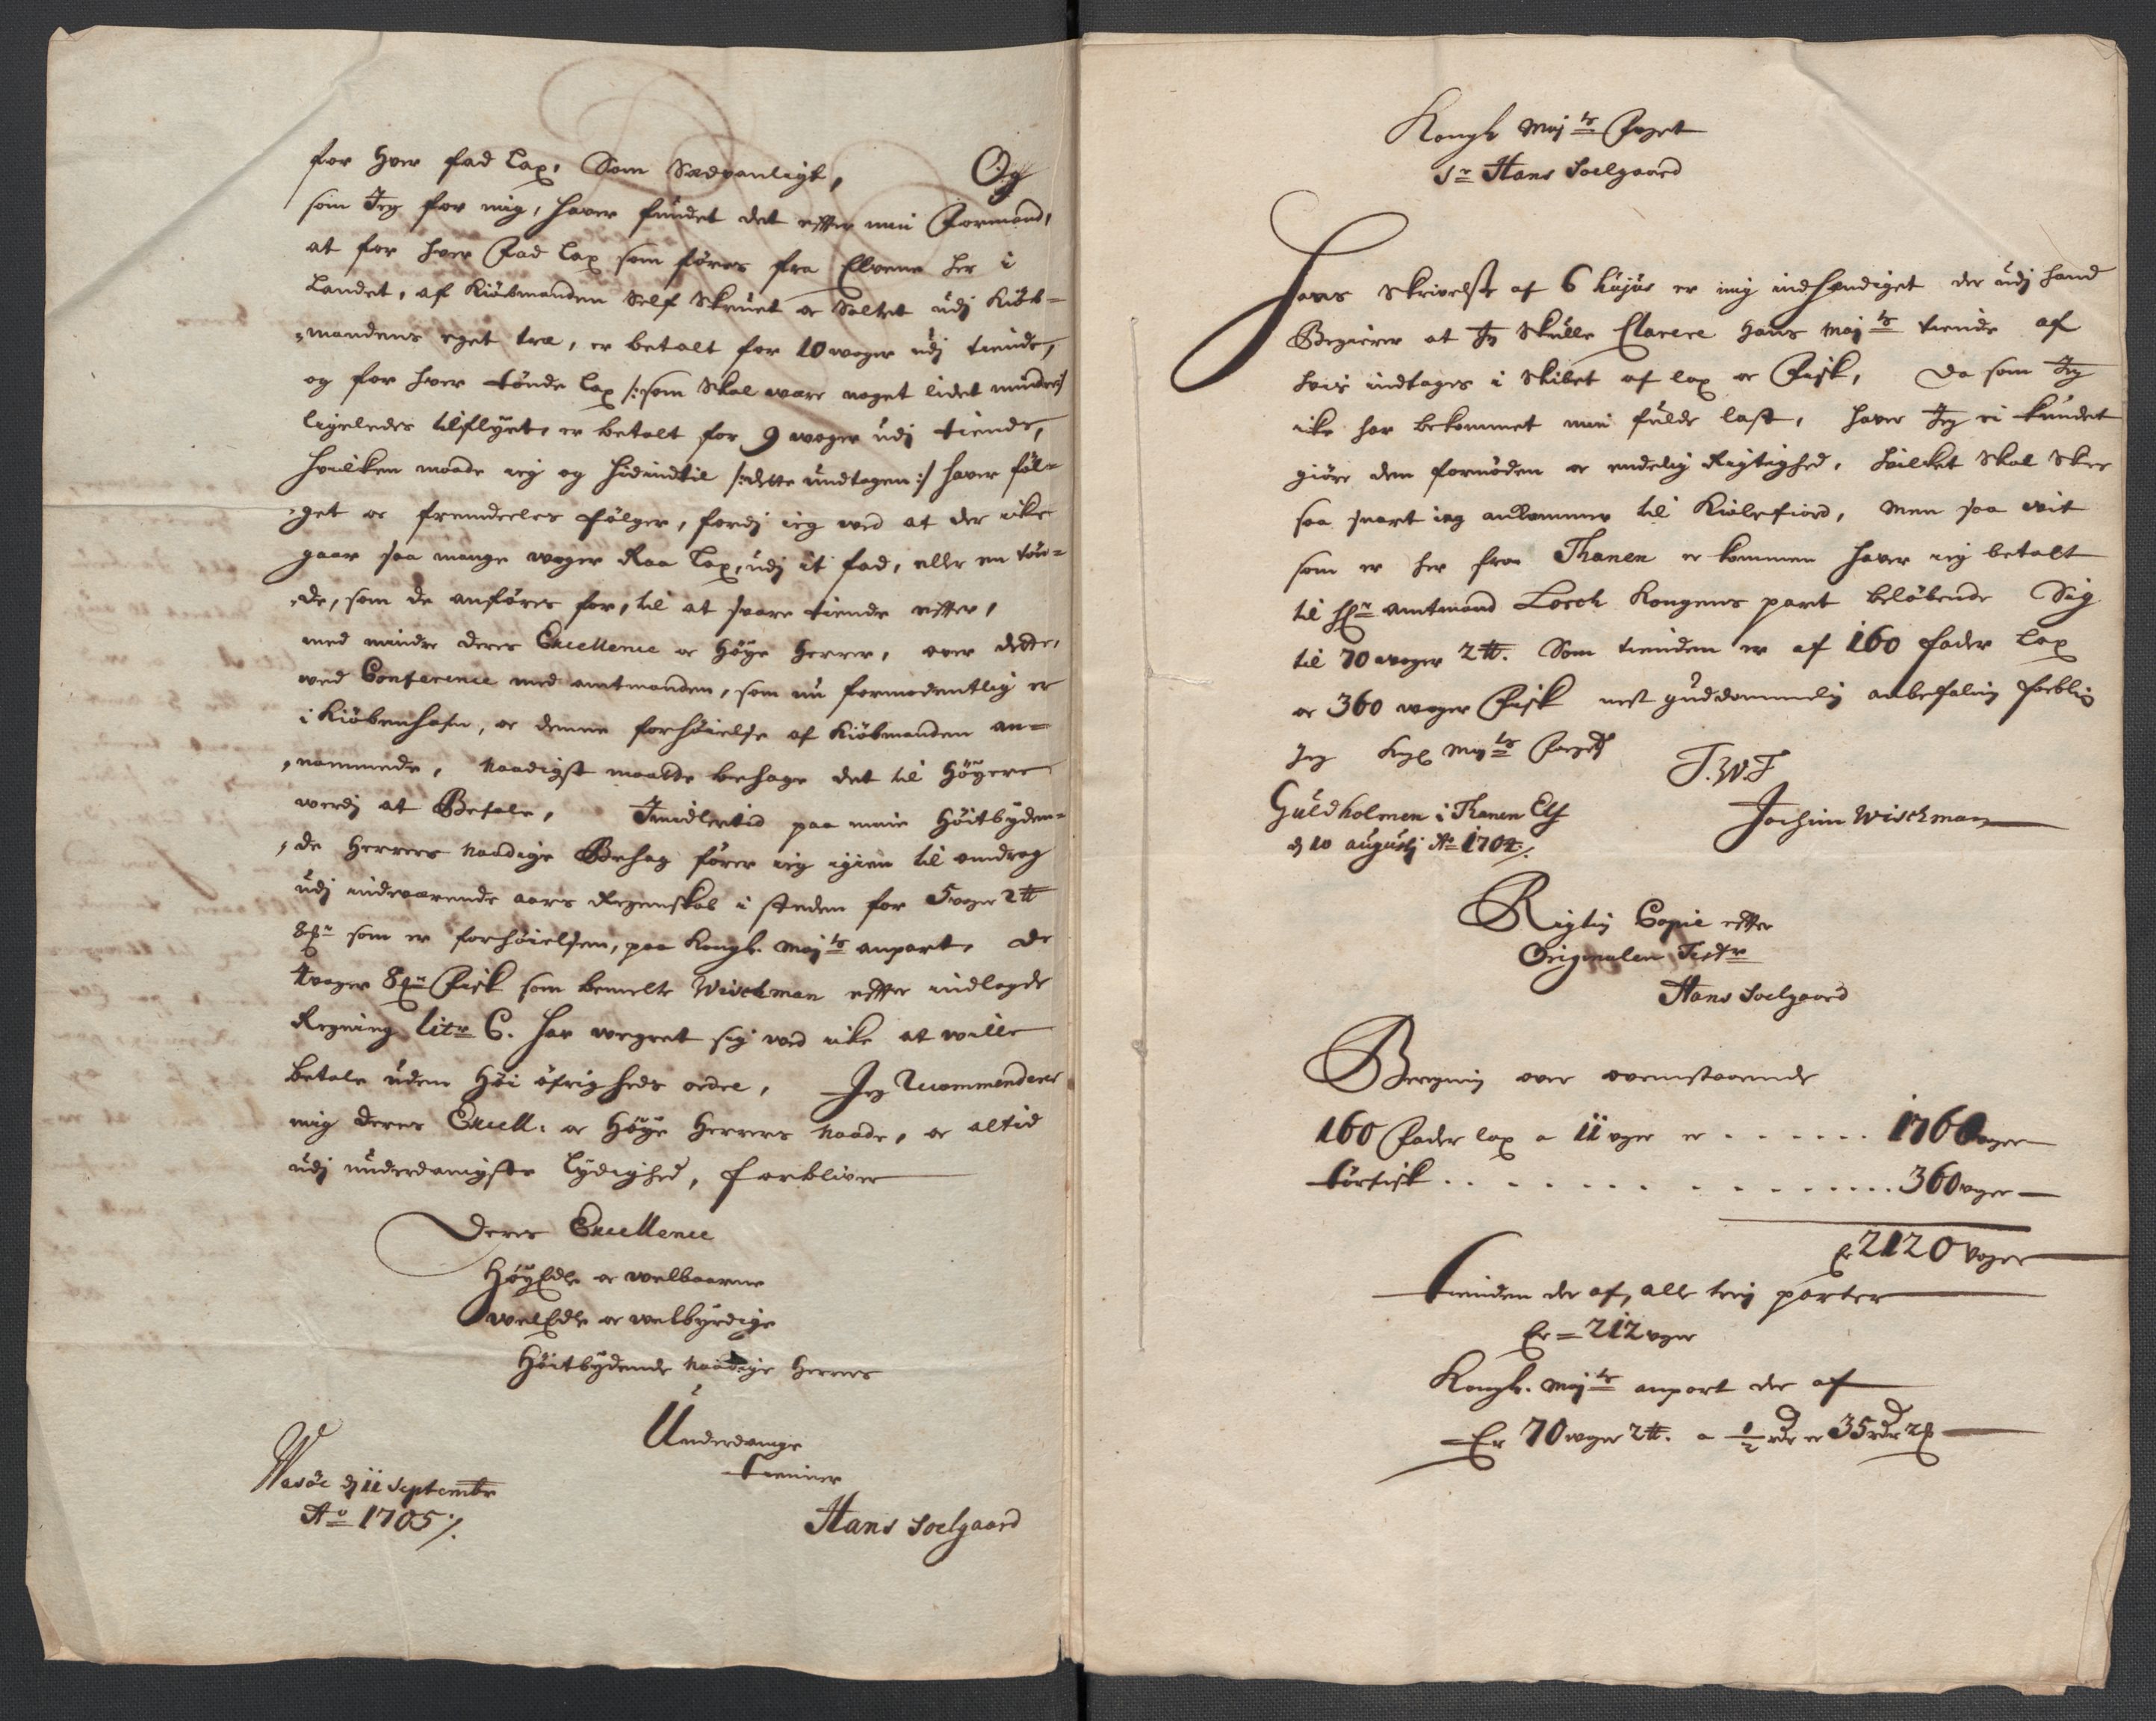 for hver fad lax, Som Sædvanligt, Og
som Jeg for mig, haver fundet det efter min Formand,
at for hver Fad lax som føres fra Elvene her i
Landet, af Kiöbmanden Self Skeuet oc Saltet udj Kiöb=
=mandens eget træ, er betalt for 10 woger udj tiende,
og for hver tönde lax /: som Skal wære noget lidet mindre /
ligeledes tilflyet, er betalt for 9 woger udj tiende,
hvilken maade ieg og hidindtil /: dette undtagen :/ haver föl=
=get oc fremdeeles fölger, fordj ieg wed at der icke
gaar saa mange woger Raa Lax, udj it fad, eller en tön=
=de, som de anföres for, til at svare tiende efter,
med mindre deres Excellence oc Höye Herrer, over dette,
wed Conference med amtmanden, som nu formodentlig er
i Kiöbenhafn, oc denne forhöielse af Kiöbmanden an=
=nammede, Naadigst maatte behage det til Höyere
werdj at Befale, Imidlertid paa mine Höitbyden=
=de Herrers Naadige Behag förer ieg igien til andrag
udj indewærende aars Regenskab i steden for 5 woger 2 ℔
som er forhöielsen, paa Kongl. Maj:ts anpart, de
4 woger 8 Fisk som bemelte Wischman efter indlagde
Regning litr C. har wegret sig wed icke at wille
betale uden Höi öfrigheds ordre, Jeg Recommenderer
mig deres Excell: oc Höye Herrers Naade, oc altid
udj underdanigste lydighed, forbliver
Deres Excellence
HöyEdle oc welbaarne
WelEdle oc welbyrdige
Höitbydende Naadige Herrers
Underdanige
tienner
Wadöe dj 11 Septembr
Ao 1705 /.
Hans Soelgaard
Kongl Maj:ts Foget
Sr Hans Soelgaard
Hans Skrivelse af 6 hujus er mig indhændiget der udj hand
Begierer at Jeg Skulle Clarere Hans Maj:ts tiende af
hvis indtages i Skibet af lax oc Fisk, Da som Jeg
icke har bekommet min fulde last, haver Jeg ei kundet
giöre dem fornöden oc endelig Rigtighed, hvilket Skal Skee
saa snart ieg ankommer til Kiölefiord, Men saa vit
som er her fra Thanen er kommen haver ieg betalt
til Hr amtmand Lorch Kongens part belöbende Sig
til 70 woger 2 ℔. Som tienden er af 160 fader lax
oc 360 woger Fisk nest guddommelig anbefaling forblif
Jeg Kongl Maj:ts Fogeds
T.W.T
Guldholmen i Thanen Elf
dj 10 augustj Ao 1704 /.
Jochim Wischman
Rigtig Copie efter
Originalen Testr
Hans Soelgaard
Beregning over ovenstaaende
160 Fader lax a 11 woger er . . . . . . 1760 woger
törfisk . . . . . . . . . . . . . . . . . 360 woger
Er 2120 woger
tienden der af, alle trej parter
Er = 212 woger
Kongl. Maj:ts anport der af
Er 70 woger 2 ℔. a 1/2 rdr er 35 rdr